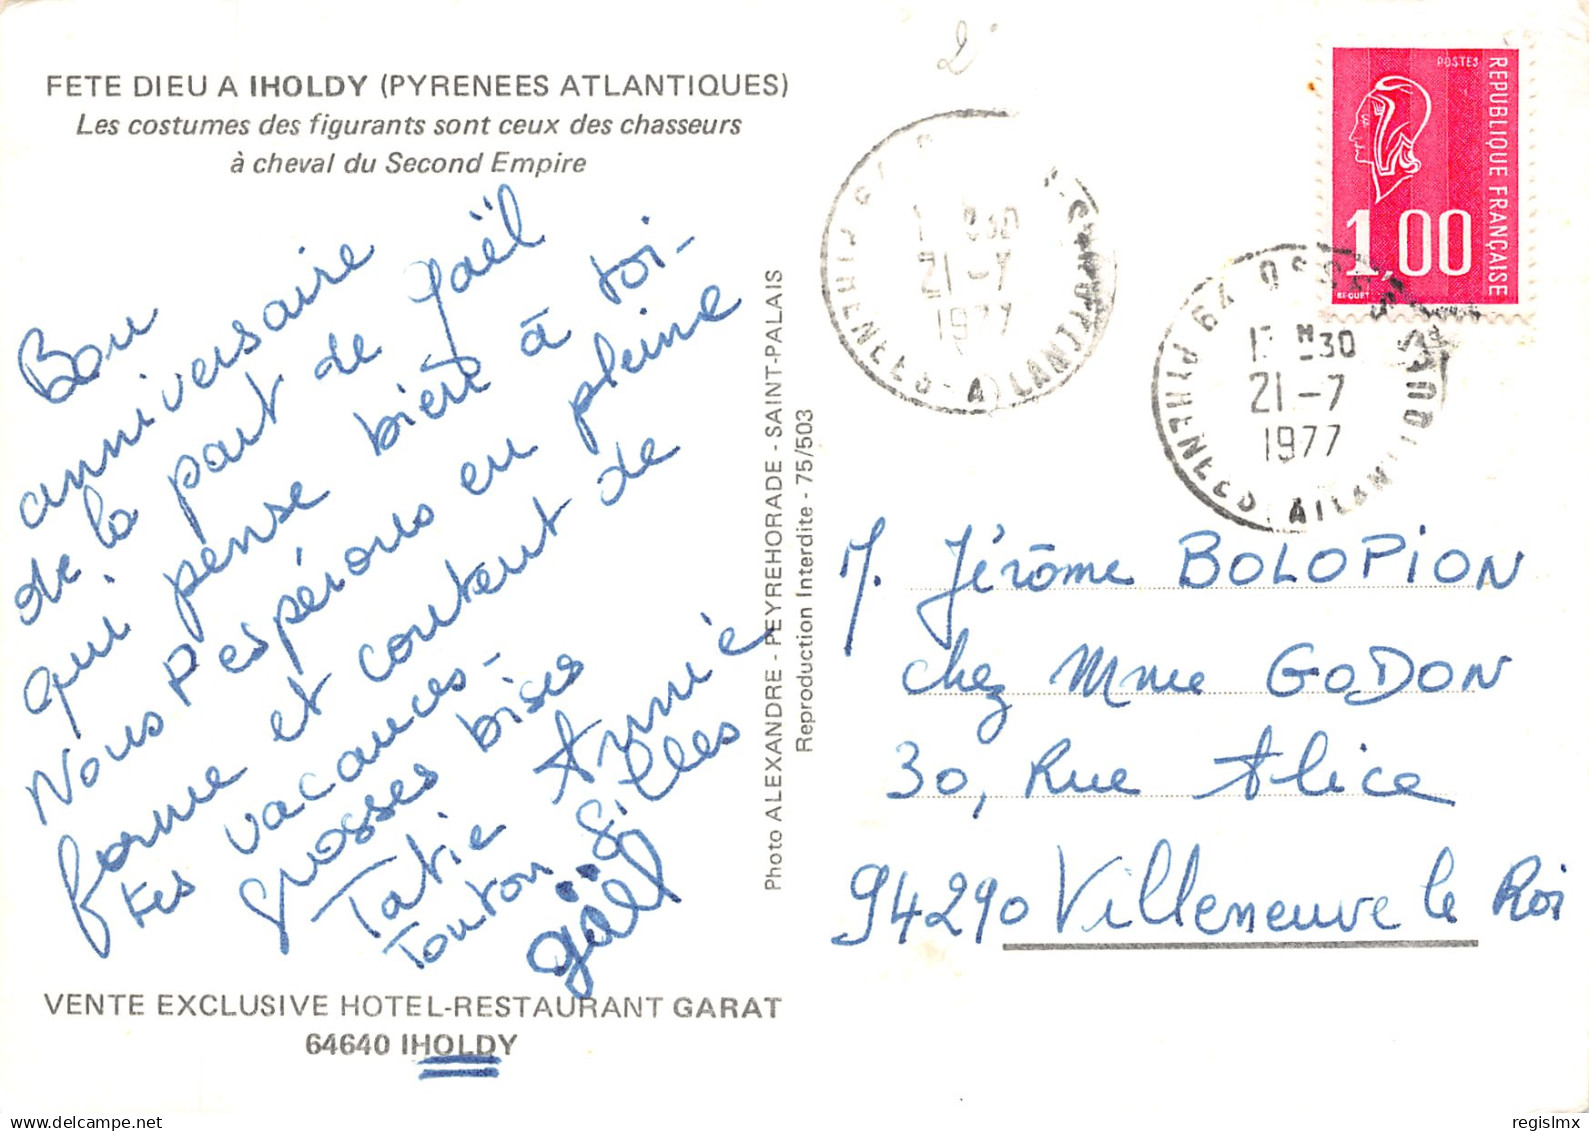 FETE DIEU A IHOLDY (PYRENEES ATLANTIQUES)
Les costumes des figurants sont ceux des chasseurs
à cheval du Second Empire
Bon
anniversaire
de la part de Gaël
qui pense bien à toi-
Nous t'espérons en pleine
forme et content de
tes vacances-
grosses bises
Tatie Annie
Tonton Gilles
gaël
VENTE EXCLUSIVE HOTEL-RESTAURANT GARAT
64640 IHOLDY
Photo ALEXANDRE - PEYREHORADE - SAINT-PALAIS
Reproduction Interdite - 75/503
POSTES
REPUBLIQUE FRANÇAISE
1,00
BEQUET
21-7
1977
PYRENEES-ATLANTIQUES
30
21-7
1977
PYRENEES ATLANTIQUES
M. Jérôme BOLOPION
chez Mme GODON
30, Rue Alice
94290 Villeneuve le Roi
regislmx